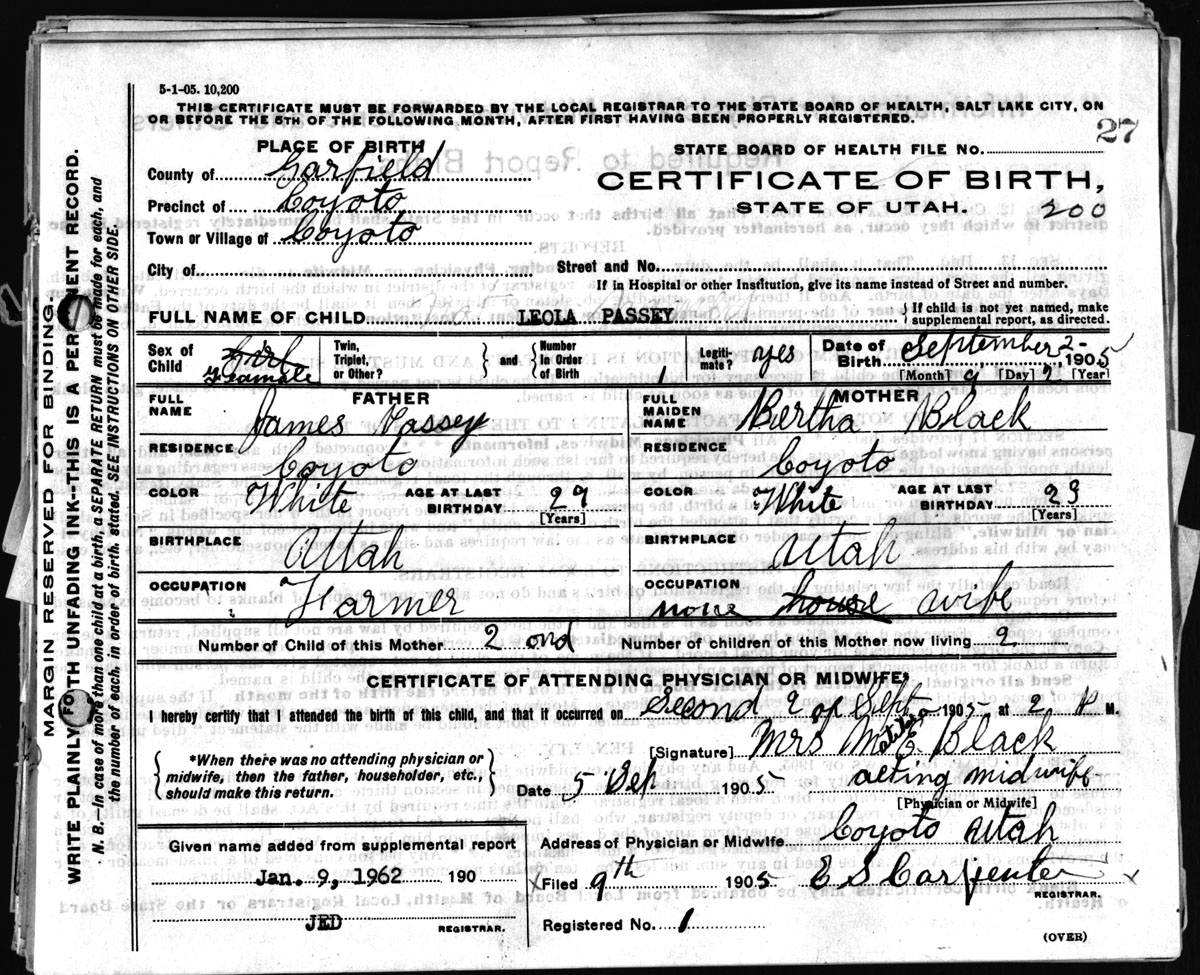 5-1-05. 10,200
THIS CERTIFICATE MUST BE FORWARDED BY THE LOCAL REGISTRAR TO THE STATE BOARD OF HEALTH, SALT LAKE CITY, ON
OR BEFORE THE 5TH OF THE FOLLOWING MONTH, AFTER FIRST HAVING BEEN PROPERLY REGISTERED.
27
PLACE OF BIRTH
STATE BOARD OF HEALTH FILE NO.
County of Garfield
CERTIFICATE OF BIRTH,
Precinct of Coyoto
STATE OF UTAH. 200
Town or Village of Coyoto
City of
Street and No.
If in Hospital or other Institution, give its name instead of Street and number.
FULL NAME OF CHILD LEOLA PASSEY { If child is not yet named, make supplemental report, as directed.
Sex of Child Girl Feamale
Twin, Triplet, or Other? } and { Number in Order of Birth 1
Legiti-mate? yes
Date of Birth September 2 - 1905
[Month] 9 [Day] 2 [Year]
FATHER
MOTHER
FULL NAME James Passey
FULL MAIDEN NAME Bertha Black
RESIDENCE Coyoto
RESIDENCE Coyoto
COLOR White AGE AT LAST BIRTHDAY 29 [Years]
COLOR White AGE AT LAST BIRTHDAY 23 [Years]
BIRTHPLACE Utah
BIRTHPLACE Utah
OCCUPATION Farmer
OCCUPATION none house wife
Number of Child of this Mother 2 ond
Number of children of this Mother now living 2
CERTIFICATE OF ATTENDING PHYSICIAN OR MIDWIFE*
I hereby certify that I attended the birth of this child, and that it occurred on Second 2 of Sept 1905 at 2 P M.
[Signature] Mrs M E Black
{ *When there was no attending physician or midwife, then the father, householder, etc., should make this return. }
Date 5 Sep 1905 acting midwife
[Physician or Midwife]
Address of Physician or Midwife Coyoto Utah
Given name added from supplemental report
Jan. 9, 1962 190
JED REGISTRAR.
Filed 9th 1905 E S Carpenter
REGISTRAR.
Registered No. 1
(OVER)
MARGIN RESERVED FOR BINDING.
WRITE PLAINLY WITH UNFADING INK--THIS IS A PERMANENT RECORD.
N. B.—In case of more than one child at a birth, a SEPARATE RETURN must be made for each, and
the number of each, in order of birth, stated. SEE INSTRUCTIONS ON OTHER SIDE.